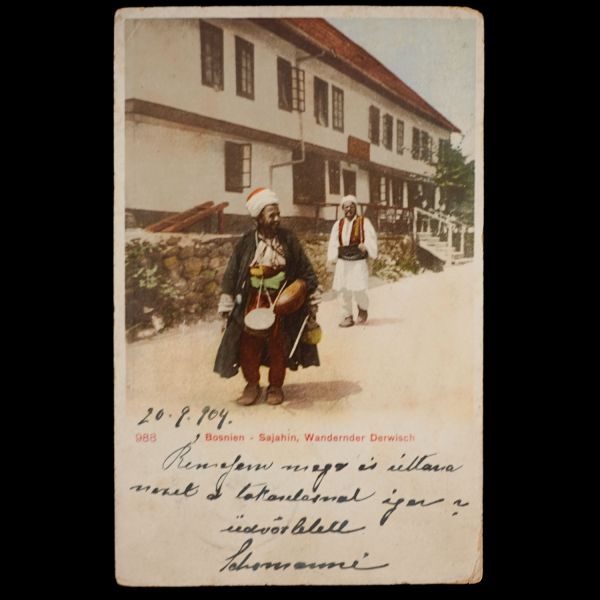 20. 9. 904.
988 Bosnien - Sajahin, Wandernder Derwisch
Remélem maga is
a takarításnál igen
üdvözlettel
Schomanné